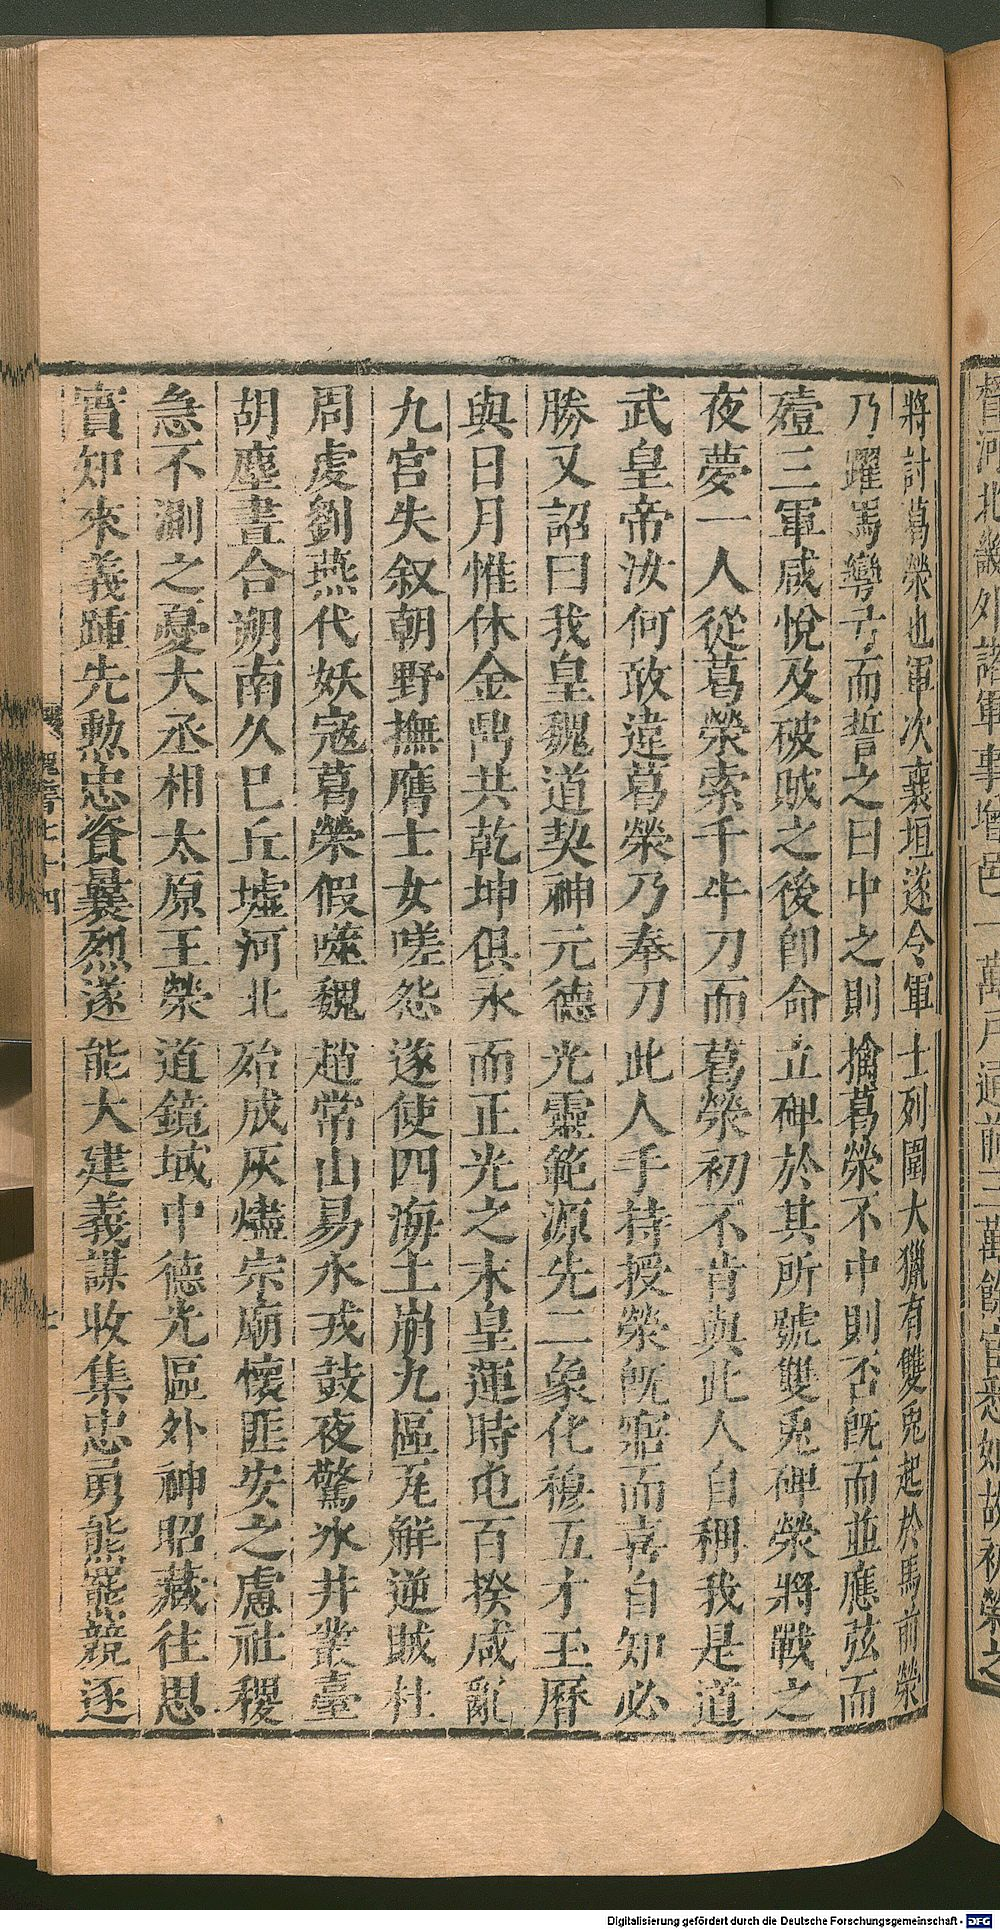 督河北畿外諸軍事增邑一萬戶通前三萬餘官悉如故初榮之
將討葛榮也軍次襄垣遂令軍士列圍大獵有雙兎起於馬前榮
乃躍馬彎弓而誓之曰中之則擒葛榮不中則否旣而並應弦而
殪三軍咸悅及破賊之後卽命立碑於其所號雙兎碑榮將戰之
夜夢一人從葛榮索千牛刀而葛榮初不肯與此人自稱我是道
武皇帝汝何敢違葛榮乃奉刀此人手持授榮旣寤而喜自知必
勝又詔曰我皇魏道契神元德光靈範源先二象化穆五才玉曆
與日月惟休金鼎共乾坤俱永而正光之末皇運時屯百揆咸亂
九宮失敘朝野撫膺士女嗟怨遂使四海土崩九區瓦解逆賊杜
周虔劉燕代妖寇葛榮假噬魏趙常山易水戎鼓夜驚冰井叢臺
胡塵晝合朔南久已丘墟河北殆成灰燼宗廟懷匪安之慮社稷
急不測之憂大丞相太原王榮道鏡域中德光區外神昭藏往思
實知來義踵先勲忠資曩烈遂能大建義謀收集忠勇熊羆競逐
魏書七十四
Digitalisierung gefördert durch die Deutsche Forschungsgemeinschaft - DFG